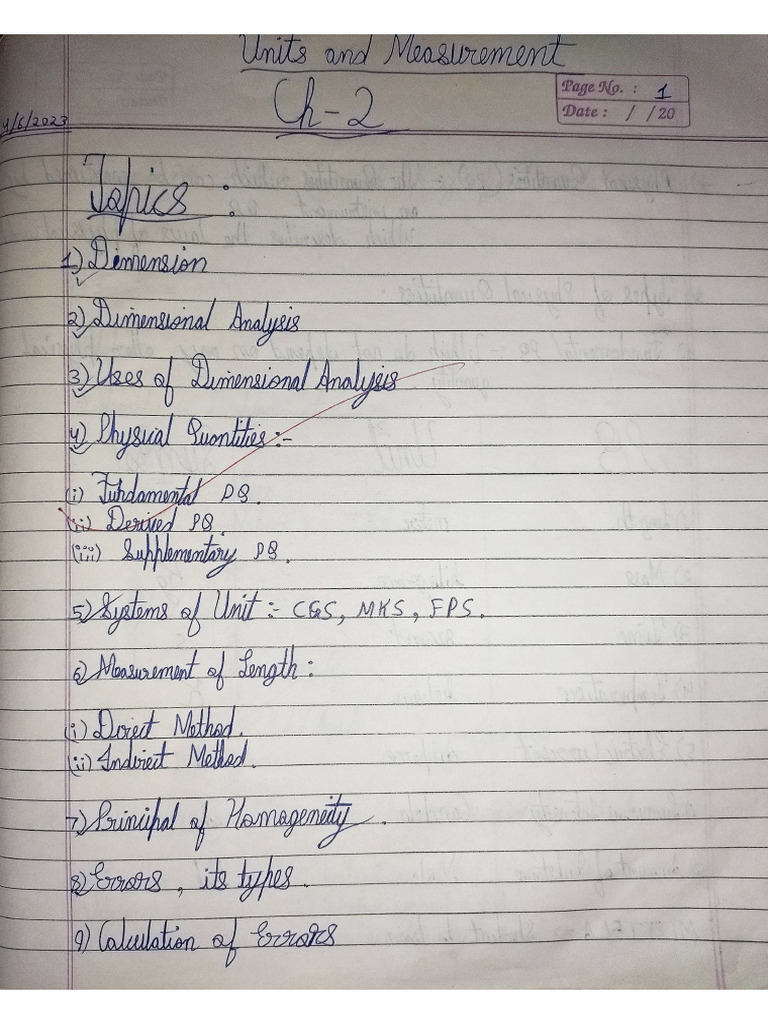 Units and Measurement
Ch-2
Page No. : 1
Date : / /20
4/6/2023
Topics :
1) Dimension
2) Dimensional Analysis
3) Uses of Dimensional Analysis
4) Physical Quantities :-
(i) Fundamental PQ.
(ii) Derived PQ
(iii) Supplementary PQ.
5) Systems of Unit :- CGS, MKS, FPS.
6) Measurement of Length :
(i) Direct Method.
(ii) Indirect Method.
7) Principal of Homogeneity.
8) Errors, its types.
9) Calculation of Errors